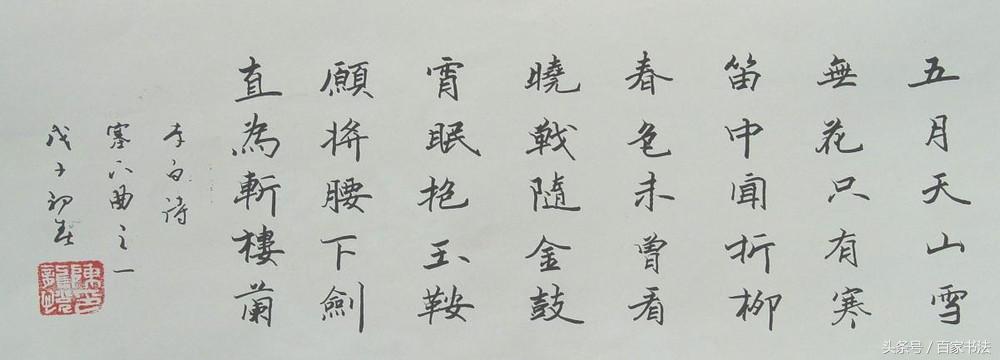 五月天山雪
無花只有寒
笛中聞折柳
春色未曾看
曉戰隨金鼓
宵眠抱玉鞍
願將腰下劍
直為斬樓蘭
李白詩
塞下曲之一
戊子初春
头条号／百家书法